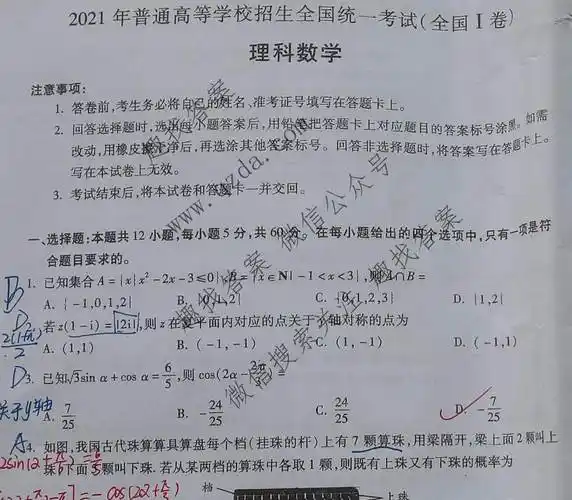 2021年普通高等学校招生全国统一考试(全国Ⅰ卷)
理科数学
注意事项:
1. 答卷前,考生务必将自己的姓名、准考证号填写在答题卡上。
2. 回答选择题时,选出每小题答案后,用铅笔把答题卡上对应题目的答案标号涂黑。如需
改动,用橡皮擦干净后,再选涂其他答案标号。回答非选择题时,将答案写在答题卡上。
写在本试卷上无效。
3. 考试结束后,将本试卷和答题卡一并交回。
一、选择题:本题共12小题,每小题5分,共60分。在每小题给出的四个选项中,只有一项是符
合题目要求的。
B 1. 已知集合A={x|x²-2x-3≤0},B={x∈N|-1<x<3},则A∩B=
A. {-1,0,1,2} B. {0,1,2} C. {0,1,2,3} D. {1,2}
D 若z(1-i)=|2i|,则z在复平面内对应的点关于轴对称的点为
A. (1,1) B. (-1,-1) C. (1,-1) D. (-1,1)
D 3. 已知√3sin α+cos α=6/5,则cos(2α-
关于y轴 A. 7/25 B. -24/25 C. 24/25 D. -7/25
A 4. 如图,我国古代珠算算具算盘每个档(挂珠的杆)上有7颗算珠,用梁隔开,梁上面2颗叫上
珠,下面5颗叫下珠. 若从某两档的算珠中各取1颗,则既有上珠又有下珠的概率为
档 上珠
www.
趣找答案
微信公众号
微信搜索关注
趣找答案